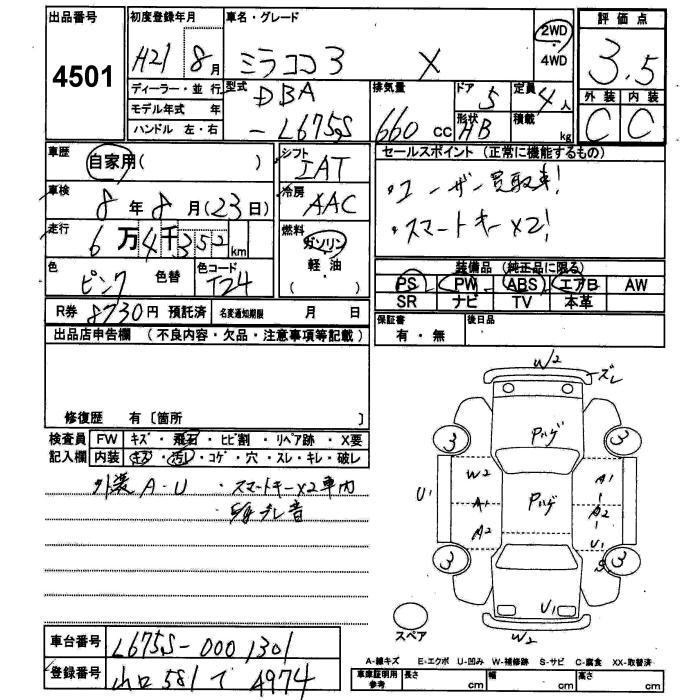 出品番号 4501
初度登録年月 H21 8月
車名・グレード ミラココア X
2WD・4WD
評価点 3.5
外装 C 内装 C
ディーラー・並行
モデル年式 年
ハンドル 左・右
型式 DBA-L675S
排気量 660cc
ドア 5
形状 HB
定員 4人
積載 kg
車歴 自家用( )
車検 8年8月(23日)
走行 6万4千352km
色 ピンク 色替
色コード T24
シフト IAT
冷房 AAC
燃料 ガソリン・軽油( )
セールスポイント(正常に機能するもの)
・ユーザー買取車!
・スマートキーx2!
装備品(純正品に限る)
PS PW ABS エアB AW
SR ナビ TV 本革
R券 8730円 預託済 名変通知期限 月 日
保証書 有・無
後日品
出品店申告欄(不良内容・欠品・注意事項等記載)
修復歴 有〔箇所 〕
検査員記入欄
FW キズ・飛石・ヒビ割・リペア跡・X要
内装 キズ・汚レ・コゲ・穴・スレ・キレ・破レ
外装 A・U ・スマートキーx2車内
ブレ音
W2 ズレ
3 Pハゲ 3
W2 A1
U1 A1 Pハゲ A2
A2 U1
3 S 3
U1
スペア
車台番号 L675S-0001301
登録番号 山口 581 て 4974
A-線キズ E-エクボ U-凹み W-補修跡 S-サビ C-腐食 XX-取替済
車庫証明用参考 長さ cm 幅 cm 高さ cm